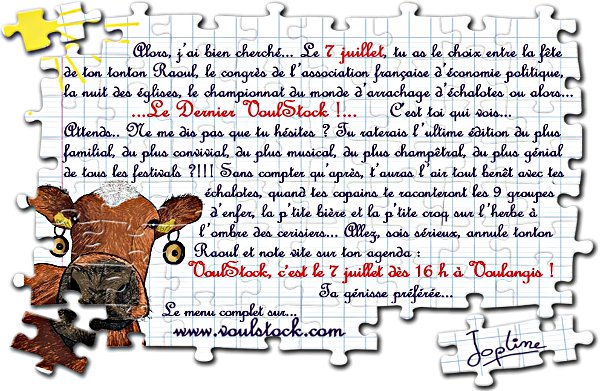 Alors, j'ai bien cherché... Le 7 juillet, tu as le choix entre la fête
de ton tonton Raoul, le congrès de l'association française d'économie politique,
la nuit des églises, le championnat du monde d'arrachage d'échalotes ou alors...
...Le Dernier VoulStock !... C'est toi qui vois...
Attends.. Ne me dis pas que tu hésites ? Tu raterais l'ultime édition du plus
familial, du plus convivial, du plus musical, du plus champêtral, du plus génial
de tous les festivals ?!!! Sans compter qu'après, t'auras l'air tout benêt avec tes
échalotes, quand tes copains te raconteront les 9 groupes
d'enfer, la p'tite bière et la p'tite croq sur l'herbe à
l'ombre des cerisiers... Allez, sois sérieux, annule tonton
Raoul et note vite sur ton agenda :
VoulStock, c'est le 7 juillet dès 16 h à Voulangis !
Ta génisse préférée...
Le menu complet sur...
www.voulstock.com
Jopline